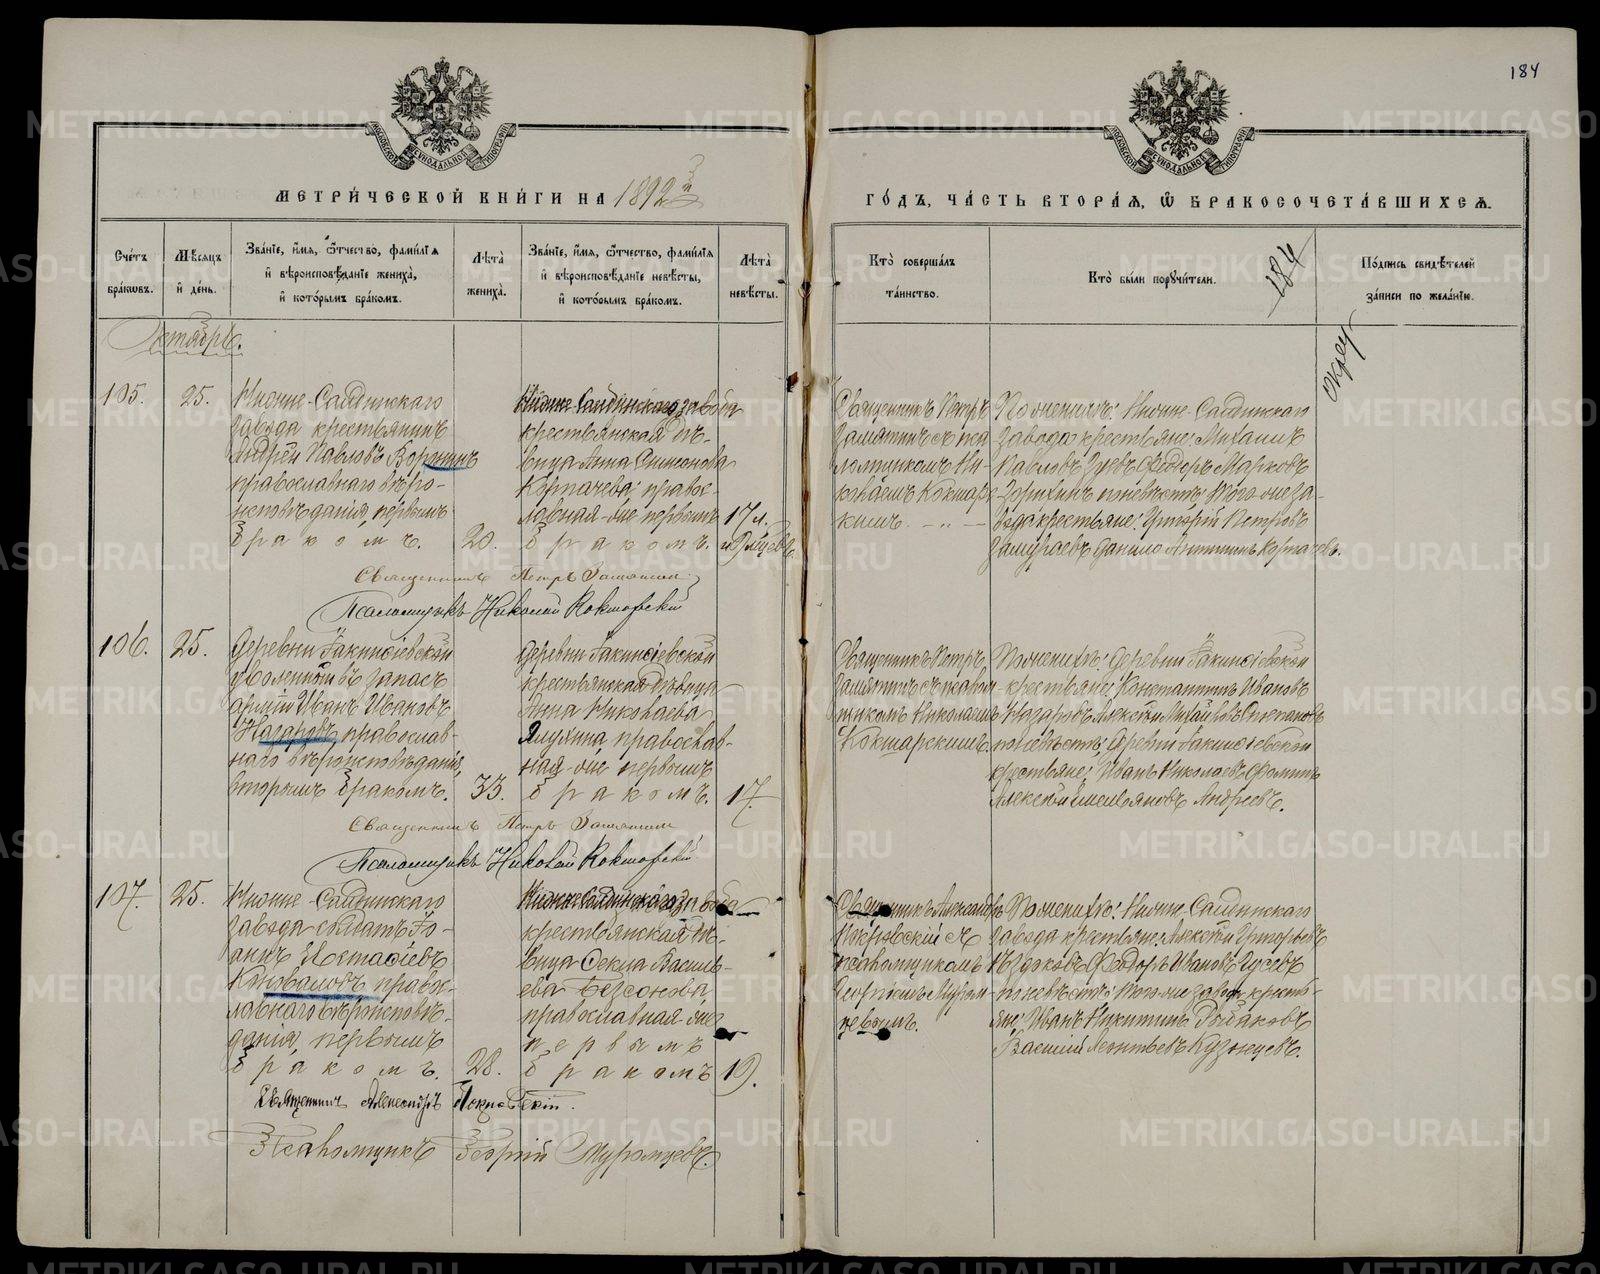 184
МЕТРИ́ЧЕСКОЙ КНИ́ГИ НА 1892й
ГО́ДЪ, ЧА́СТЬ ВТОРА́Я, Ѡ БРАКОСОЧЕТА́ВШИХСЯ.
Сче́тъ бра́кωвъ.
Мѣ́сяцъ и҆ де́нь.
Зва́нїе, и҆́мя, ѻ҆́тчество, фами́лїя и҆ вѣроисповѣ́данїе жениха̀, и҆ кото́рымъ бра́комъ.
Лѣта̀ жениха̀.
Зва́нїе, и҆́мя, ѻ҆́тчество, фами́лїя и҆ вѣроисповѣ́данїе невѣ́сты, и҆ кото́рымъ бра́комъ.
Лѣта̀ невѣ́сты.
Кто̀ соверша́лъ та́инство.
Кто̀ бы́ли поручи́тели.
184
По́дпись свидѣ́телей за́писи по жела́нїю.
Октябрь.
105.
25.
Нижне-Салдинскаго
завода крестьянинъ
Андрей Павловъ Воронинъ
православнаго вѣро-
исповѣданія, первымъ
бракомъ.
20.
Нижне-Салдинскаго завода
крестьянская дѣ-
вица Анна Симонова
Корпачева, правос-
лавная-же первымъ
бракомъ.
17 л.
Священникъ Петръ
Замятинъ съ пса
ломщикомъ Ни-
колаемъ Кокшарс-
кимъ. — „ —
По женихѣ: Нижне-Салдинскаго
завода крестьяне: Михаилъ
Павловъ Зуевъ, Ѳедоръ Марковъ
Зорихинъ, по невѣстѣ: того-же за-
вода крестьяне: Григорій Петровъ
Замураевъ, Данило
Священникъ Петръ Замятинъ
Псаломщикъ Николай Кокшарскій
106.
25.
Деревни Іакинѳіевской
уволенный въ запасъ
арміи Иванъ Ивановъ
Назаровъ, православ-
наго вѣроисповѣданія,
вторымъ бракомъ.
33.
Деревни Іакинѳіевской
крестьянская дѣвица
Анна Николаева
Ялухина, православ-
ная-же первымъ
бракомъ.
17.
Священникъ Петръ
Замятинъ съ псалом
щикомъ Николаемъ
Кокшарскимъ.
По женихѣ: деревни Іакинѳіевской
крестьяне: Константинъ Ивановъ
Назаровъ, Алексѣй Михайловъ Степановъ
по невѣстѣ: деревни Іакинѳіевской
крестьяне: Иванъ Николаевъ Ѳоминъ
Алексѣй Емельяновъ Андреевъ.
Священникъ Петръ Замятинъ
Псаломщикъ Николай Кокшарскій
107.
25.
Нижне-Салдинскаго
завода солдатъ Іо-
аннъ Евстаѳіевъ
Коноваловъ, правос-
лавнаго вѣроисповѣ-
данія, первымъ
бракомъ.
28.
Нижне-Салдинскаго завода
крестьянская дѣ-
вица Секла Василь-
ева Безсонова
православная-же
первымъ
бракомъ
19.
Священникъ Александръ
Покровскій съ
псаломщикомъ
Георгіемъ Муром-
цевымъ.
По женихѣ: Нижне-Салдинскаго
завода крестьяне: Алексѣй Григорьевъ
Ѳедоръ Ивановъ Гусевъ
по невѣстѣ: того-же завода кресть-
яне: Иванъ Никитинъ
Василій Леонтьевъ Кузнецовъ.
Священникъ Александръ Покровскій.
Псаломщикъ Георгій Муромцевъ.
METRIKI.GASO-URAL.RU